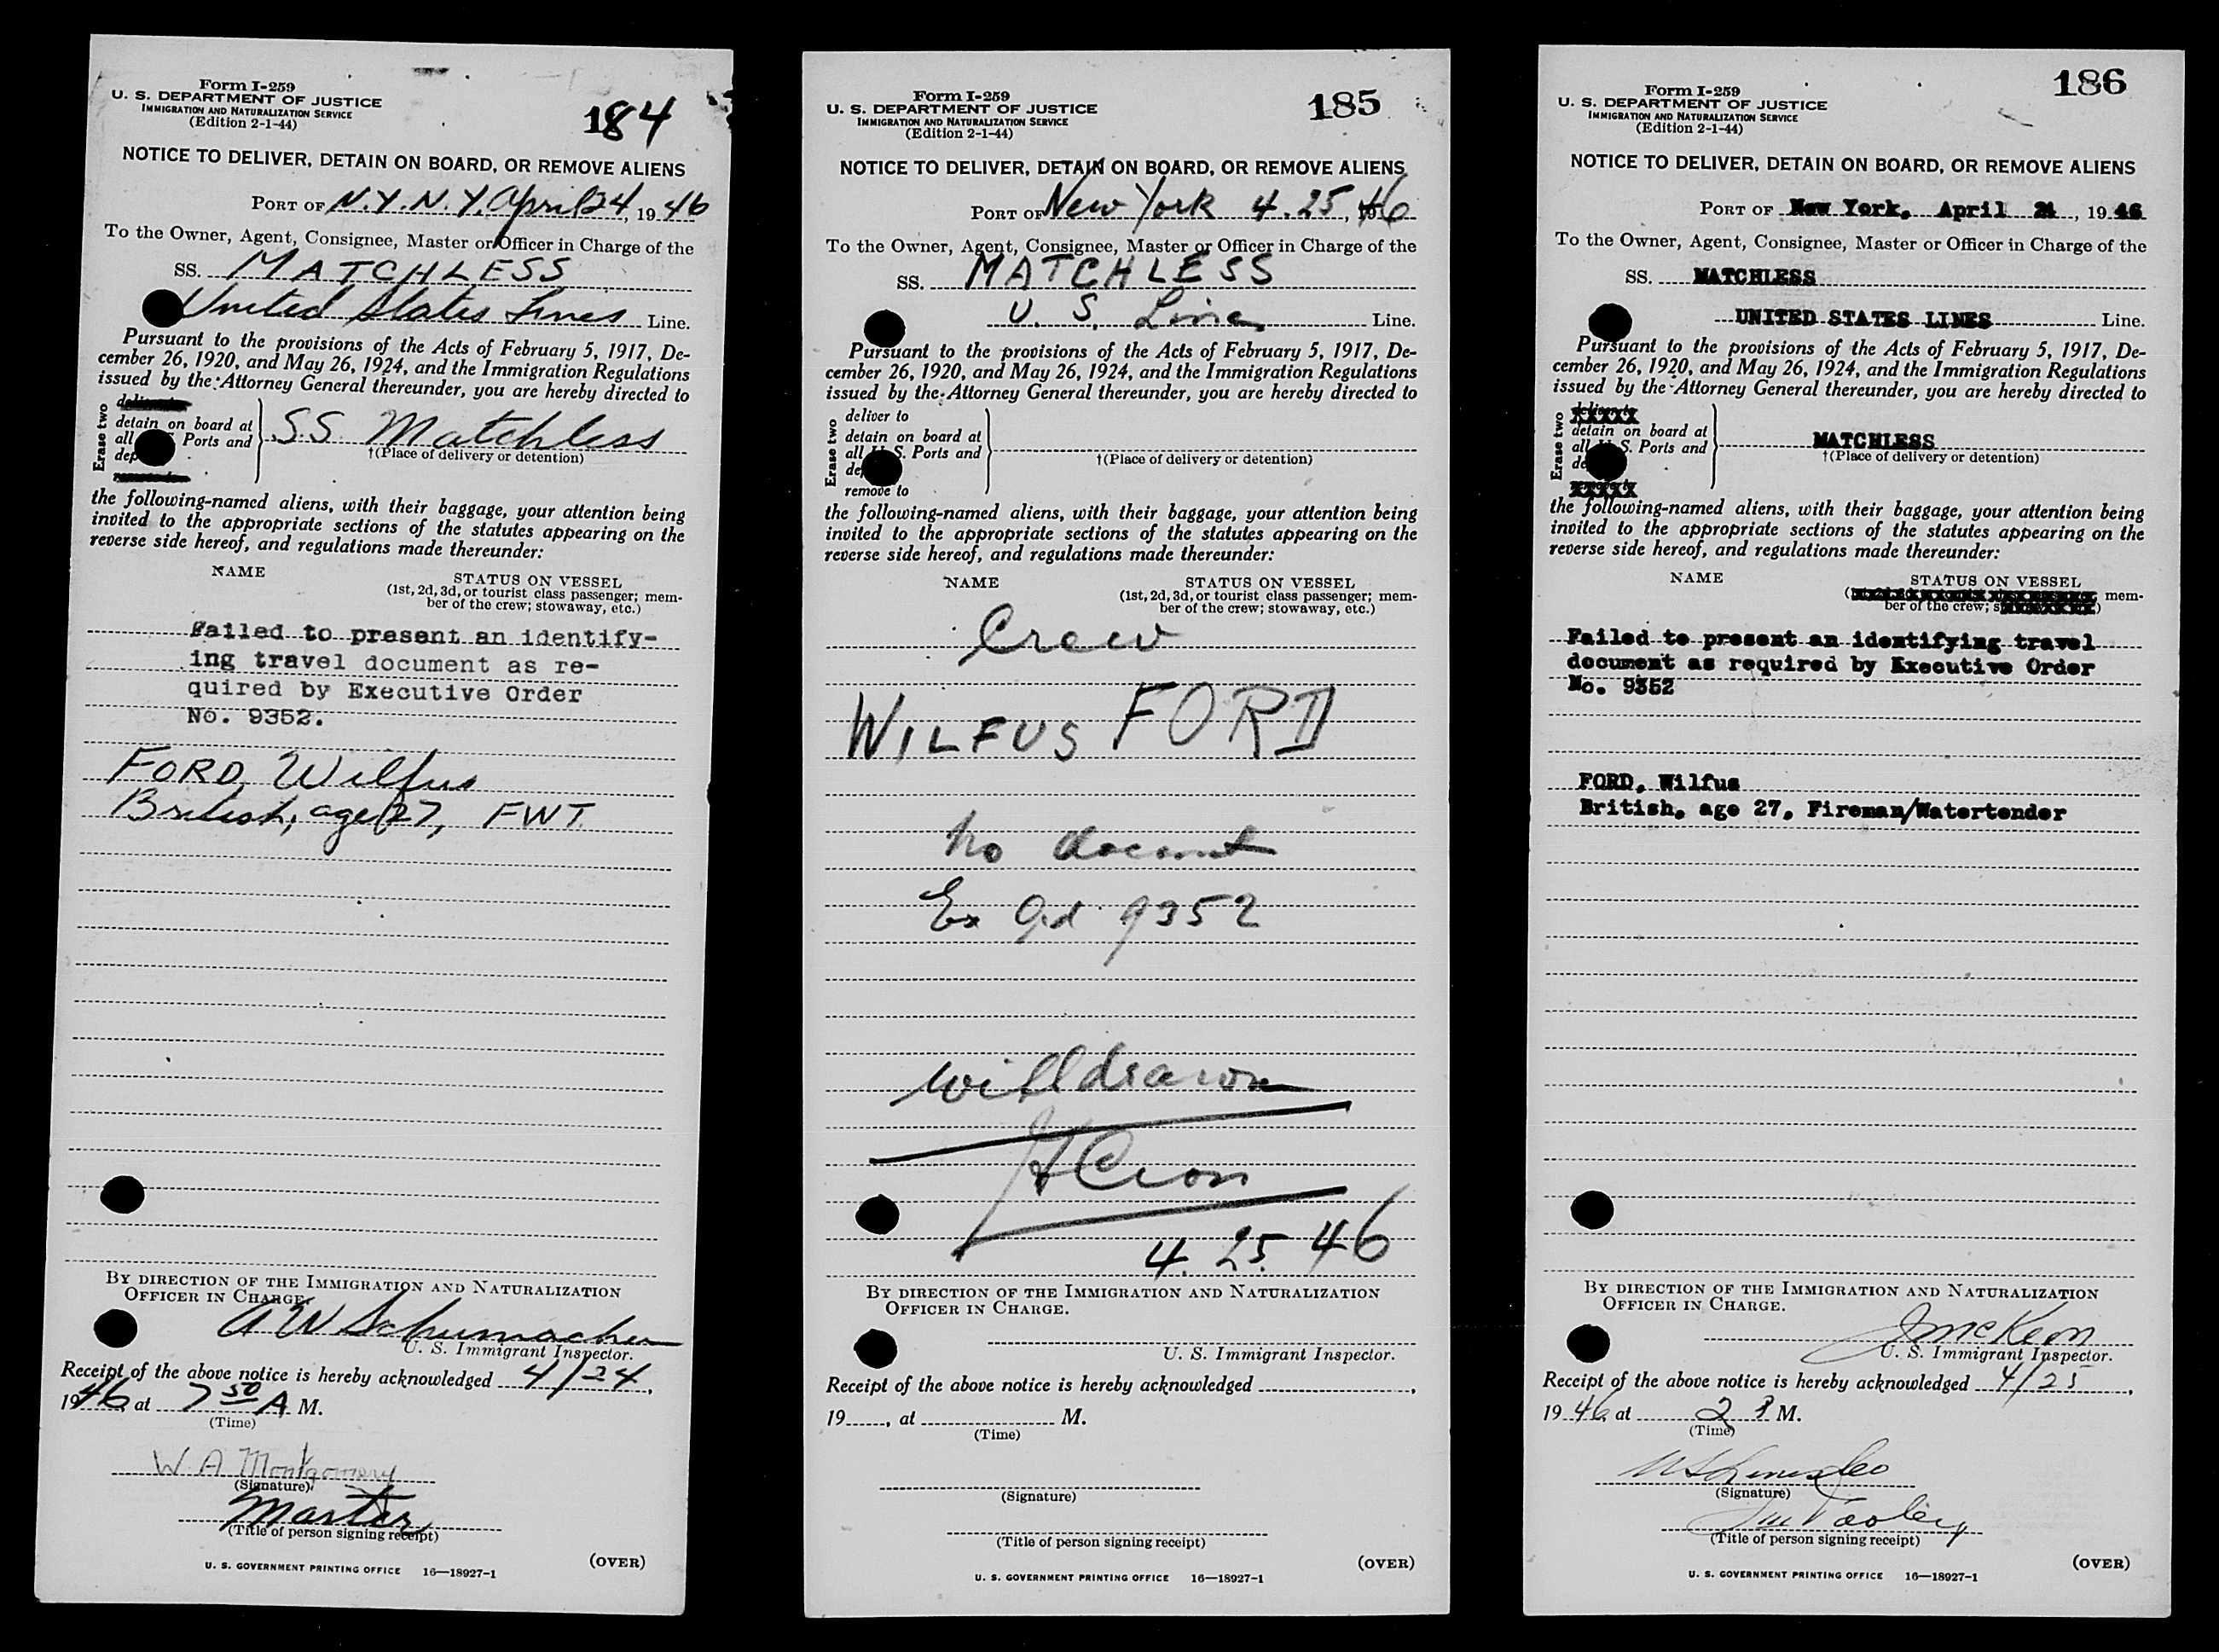 Form I-259
U. S. DEPARTMENT OF JUSTICE
IMMIGRATION AND NATURALIZATION SERVICE
(Edition 2-1-44)
184
NOTICE TO DELIVER, DETAIN ON BOARD, OR REMOVE ALIENS
PORT OF N.Y. N.Y. April 24, 1946
To the Owner, Agent, Consignee, Master or Officer in Charge of the
SS. MATCHLESS
United States Lines Line.
Pursuant to the provisions of the Acts of February 5, 1917, De-
cember 26, 1920, and May 26, 1924, and the Immigration Regulations
issued by the Attorney General thereunder, you are hereby directed to
Erase two
detain on board at
all Ports and
dep
SS. Matchless
†(Place of delivery or detention)
the following-named aliens, with their baggage, your attention being
invited to the appropriate sections of the statutes appearing on the
reverse side hereof, and regulations made thereunder:
NAME
STATUS ON VESSEL
(1st, 2d, 3d, or tourist class passenger; mem-
ber of the crew; stowaway, etc.)
Failed to present an identify-
ing travel document as re-
quired by Executive Order
No. 9352.
FORD, Wilfus
British, age 27, FWT
BY DIRECTION OF THE IMMIGRATION AND NATURALIZATION
OFFICER IN CHARGE.
A W Schumacher
U. S. Immigrant Inspector.
Receipt of the above notice is hereby acknowledged 4/24,
1946, at 7 50 A M.
(Time)
W. A. Montgomery
(Signature)
Master
(Title of person signing receipt)
(OVER)
U. S. GOVERNMENT PRINTING OFFICE 16—18927-1
Form I-259
U. S. DEPARTMENT OF JUSTICE
IMMIGRATION AND NATURALIZATION SERVICE
(Edition 2-1-44)
185
NOTICE TO DELIVER, DETAIN ON BOARD, OR REMOVE ALIENS
PORT OF New York 4.25, 1946
To the Owner, Agent, Consignee, Master or Officer in Charge of the
SS. MATCHLESS
U. S. Lines Line.
Pursuant to the provisions of the Acts of February 5, 1917, De-
cember 26, 1920, and May 26, 1924, and the Immigration Regulations
issued by the Attorney General thereunder, you are hereby directed to
Erase two
deliver to
detain on board at
all U. S. Ports and
de
remove to
†(Place of delivery or detention)
the following-named aliens, with their baggage, your attention being
invited to the appropriate sections of the statutes appearing on the
reverse side hereof, and regulations made thereunder:
NAME
STATUS ON VESSEL
(1st, 2d, 3d, or tourist class passenger; mem-
ber of the crew; stowaway, etc.)
Crew
WILFUS FORD
No document
Ex Ord 9352
Willdrawn
4. 25. 46
BY DIRECTION OF THE IMMIGRATION AND NATURALIZATION
OFFICER IN CHARGE.
U. S. Immigrant Inspector.
Receipt of the above notice is hereby acknowledged ,
19 , at M.
(Time)
(Signature)
(Title of person signing receipt)
(OVER)
U. S. GOVERNMENT PRINTING OFFICE 16—18927-1
Form I-259
U. S. DEPARTMENT OF JUSTICE
IMMIGRATION AND NATURALIZATION SERVICE
(Edition 2-1-44)
186
NOTICE TO DELIVER, DETAIN ON BOARD, OR REMOVE ALIENS
PORT OF New York, April 24, 1946
To the Owner, Agent, Consignee, Master or Officer in Charge of the
SS. MATCHLESS
UNITED STATES LINES Line.
Pursuant to the provisions of the Acts of February 5, 1917, De-
cember 26, 1920, and May 26, 1924, and the Immigration Regulations
issued by the Attorney General thereunder, you are hereby directed to
Erase two
detain on board at
all U. S. Ports and
de
MATCHLESS
†(Place of delivery or detention)
the following-named aliens, with their baggage, your attention being
invited to the appropriate sections of the statutes appearing on the
reverse side hereof, and regulations made thereunder:
NAME
STATUS ON VESSEL
mem-
ber of the crew;
Failed to present an identifying travel
document as required by Executive Order
No. 9352
FORD, Wilfus
British, age 27, Fireman/Watertender
BY DIRECTION OF THE IMMIGRATION AND NATURALIZATION
OFFICER IN CHARGE.
J McKeon
U. S. Immigrant Inspector.
Receipt of the above notice is hereby acknowledged 4/25,
1946, at 2 P M.
(Time)
(Signature)
(Title of person signing receipt)
(OVER)
U. S. GOVERNMENT PRINTING OFFICE 16—18927-1